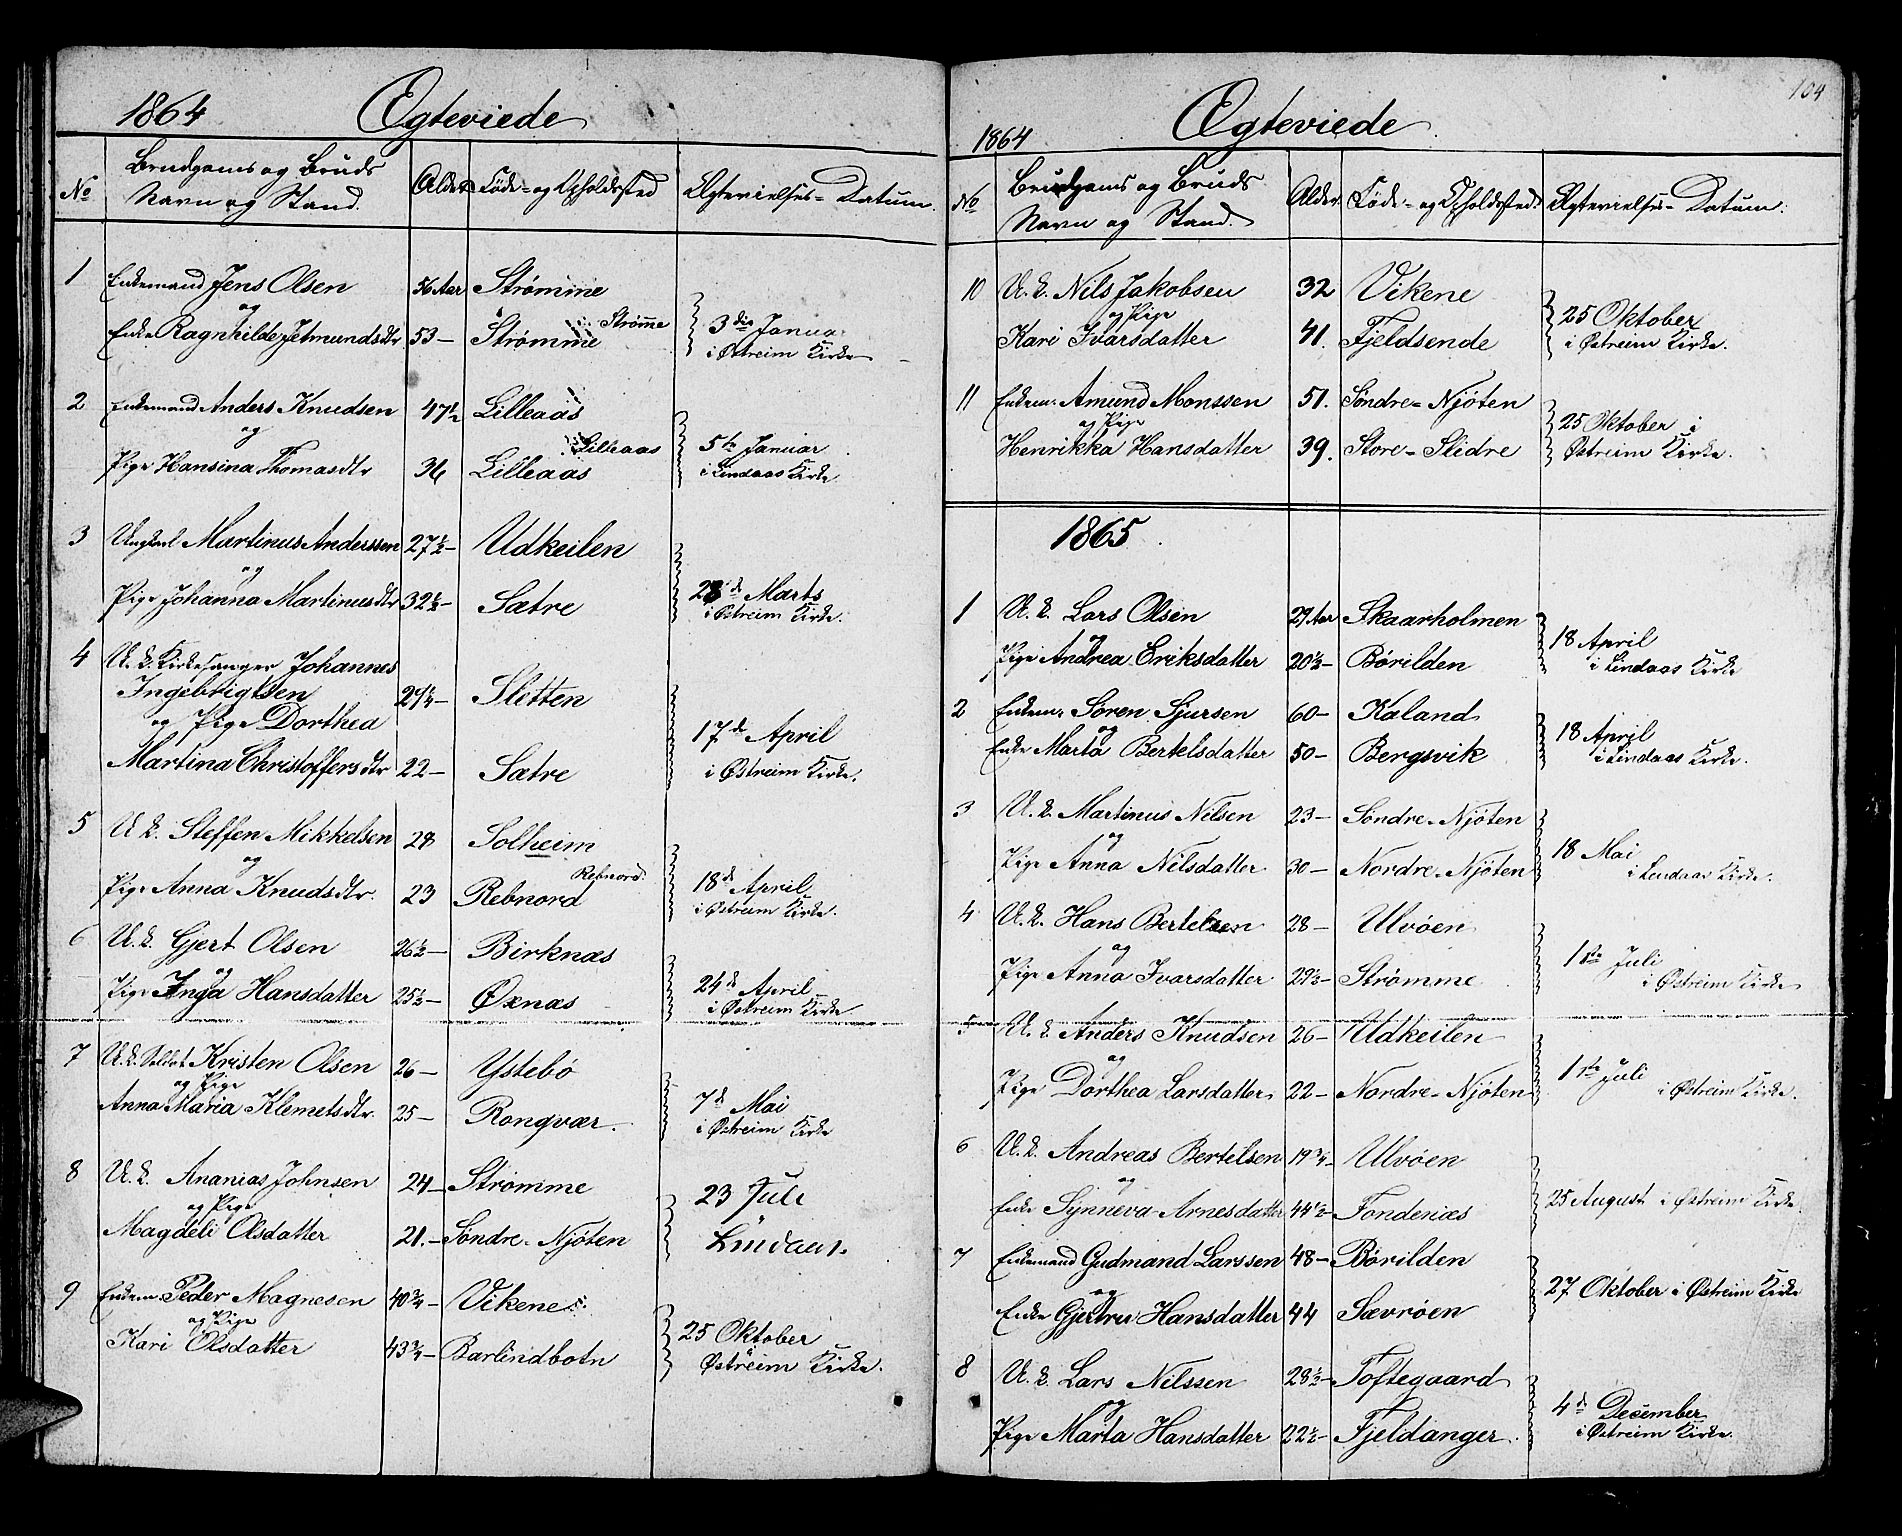 1864 Ægteviede
No Brudgoms og Bruds Navn og Stand. Alder Føde- og Opholdssted Ægtevielses-Datum.
1 Enkemand Jens Olsen 56 Aar Strømme
og Strømme 3die Januar
Enke Ragnhilde Jetmundsdtr 53 - Strømme i Østreim Kirke
2 Enkemand Anders Knudsen 47½ Lilleaas
og Lilleaas 5te Januar
Pige Hansina Thomasdtr 36 Lilleaas i Lindaas Kirke
3 Ungkarl Martinus Anderssen 27½ - Udkeilen
og 28de Marts
Pige Johanna Martinusdtr 32½ - Sætre i Østreim Kirke.
4 U. K. Kirkesanger Johannes
Ingebrigtsen 29½ - Sletten
og Pige Dorthea 17de April
Martina Christoffersdtr 22 - Sætre i Østreim Kirke.
5 U. K. Steffen Mikkelsen 28 Solheim
og Rebnord. 18de April
Pige Anna Knudsdtr. 23 Rebnord i Østreim Kirke.
6 U. K. Gjert Olsen 26½ - Birknæs
og 24de April
Pige Inga Hansdatter 25½ - Øxnæs i Østreim Kirke
7 U. K. Soldat Kristen Olsen 26 - Ystebö
og Pige 7de Mai
Anna Maria Klemetsdtr. 25 - Rongvær. i Østreim Kirke
8 U. K. Ananias Johnsen 24 - Strømme
og Pige 23 Juli
Magdeli Olsdatter 21. - Søndre-Njøten Lindaas.
9 Enkem. Peder Magnesen 40¾ - Vikene
og Pige 25 Oktober
Kari Olsdatter 43¾ - Barlindbotn Østreim Kirke.
104
1864 Ægteviede
No Brudgoms og Bruds Navn og Stand. Alder. Føde- og Opholdssted. Ægtevielses-Datum.
10 U. K. Nils Jakobsen 32 Vikene
og Pige 25 Oktober
Kari Ivarsdatter 41. Fjeldsende i Østreim Kirke.
11 Enkem. Amund Monssen 51. Søndre-Njøten
og Pige 25 Oktober i
Henrikka Hansdatter 39. Store-Slidre Østreim Kirke.
1865
1 U. K. Lars Olsen 27 Aar Skaarholmen
og 18 April
Pige Andrea Eriksdatter 20½ - Børilden i Lindaas Kirke
2 Enkem. Søren Sjursen 60 - Kaland
og 18 April
Enke Marta Bertelsdatter 50 - Bergsvik i Lindaas Kirke.
3 U. K. Martinus Nilsen 23 - Søndre-Njöten
og 18 Mai
Pige Anna Nilsdatter 30 - Nordre-Njöten i Lindaas Kirke.
4 U. K. Hans Bertelsen 28 - Ulvøen
og 1ste Juli
Pige Anna Ivarsdatter 29½ - Strømme i Østreim Kirke
5 U. K. Anders Knudsen 26 - Udkeilen
og 1ste Juli
Pige Dorthea Larsdatter 22 - Nordre-Njöten i Østreim Kirke.
6 U. K. Andreas Bertelsen 19¾ - Ulvøen
og
Enke Synneva Arnesdatter 44½ - Fondenæs 25 August i Østreim Kirke
7 Enkemand Gudmand Larssen 48 - Børilden
og 27 Oktober i Østreim Kirke
Enke Gjertru Hansdatter 44 Sævrøen
8 U. K. Lars Nilssen 28½ - Toftegaard
og 4de December
Pige Marta Hansdatter 22½ - Fjeldanger. i Østreim Kirke.